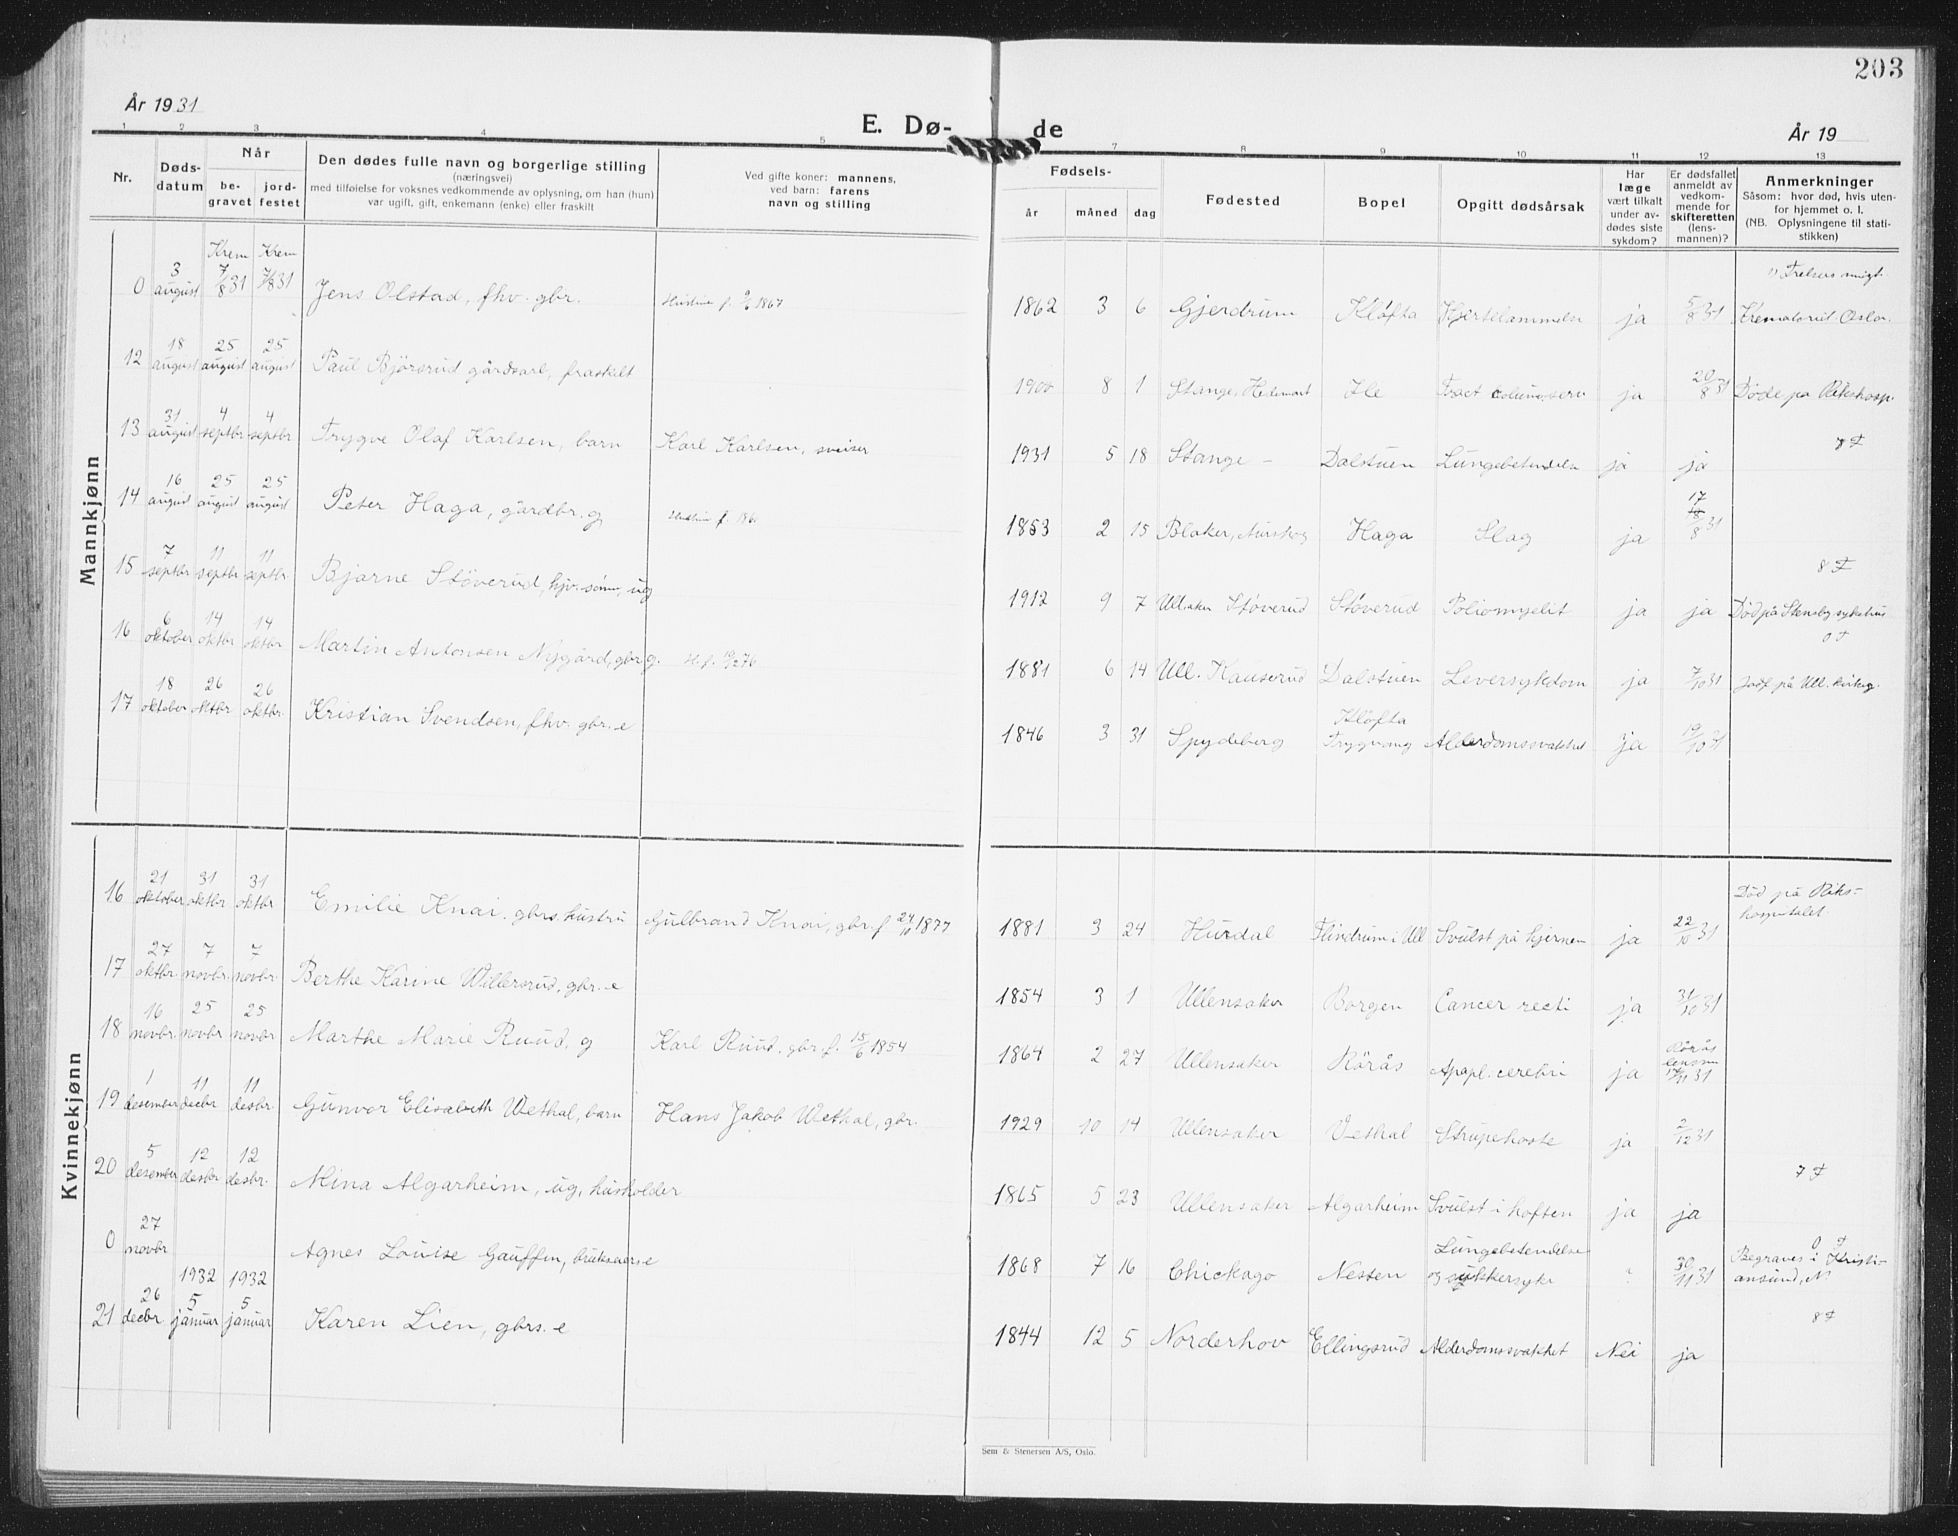 203
År 1931
E. Dø- de
År 19
1 2 3 4 5 7 8 9 10 11 12 13
Nr.
Døds-
datum
Når
be-
gravet
jord-
festet
Den dødes fulle navn og borgerlige stilling
(næringsvei)
med tilføielse for voksnes vedkommende av oplysning, om han (hun)
var ugift, gift, enkemann (enke) eller fraskilt
Ved gifte koner: mannens,
ved barn: farens
navn og stilling
Fødsels-
år måned dag
Fødested
Bopel
Opgitt dødsårsak
Har
læge
vært tilkalt
under av-
dødes siste
sykdom?
Er dødsfallet
anmeldt av
vedkom-
mende for
skifteretten
(lens-
mannen)?
Anmerkninger
Såsom: hvor død, hvis uten-
for hjemmet o. l.
(NB. Oplysningene til stati-
stikken)
Mannkjønn
0 3 august Krem 7/8 31 Krem 7/8 31 Jens Olstad, fhv. gbr. 1867 1862 3 6 Gjerdrum Kløfta Hjertelammelse ja 5/8 31 Krematoriet Oslo.
12 18 august 25 august 25 august Paul Bjørsrud gårdsarb, fraskilt 1900 8 1 Stange, Hedemark ja 20/8 31 Døde på Rikshosp.
13 31 august 4 septbr 4 septbr Trygve Olaf Karlsen, barn Karl Karlsen, sveiser 1931 5 18 Stange - Dalstuen Lungebetendelse ja ja
14 16 august 25 august 25 august Peter Haga, gårdbr. g 1853 2 15 Blaker, Aurskog Haga Slag ja 17/8 31
15 7 septbr 11 septbr 11 septbr. Bjarne Støverud, hjv. sønn, ug 1912 9 7 Ullsaker Støverud Støverud Poliomyelit ja ja Død på Stensby sykehus
8 F
16 6 oktober 14 oktbr 14 oktbr Martin Antonsen Nygård, gbr g. 1881 6 14 Ull. Kauserud Dalstuen Leversykdom ja 7/10 31 Jordf på Ull. kirkeg.
17 18 oktober 26 oktbr 26 oktbr. Kristian Svendsen, fhv. gbr. e 1846 3 31 Spydeberg Kløfta Trygvang Alderdomssvakhet ja 19/10 31
Kvinnekjønn
16 21 oktober 31 oktbr 31 oktbr Emilie Knai. gbrs. hustru Gulbrand Knai, gbr. f 1877 1881 3 24 Hurdal Flindrum i Ull Svulst på hjernen ja 22/10 31 Død på Riks-
hospitalet.
17 27 oktbr. 7 novbr. 7 novbr. Berthe Karine Willersrud, gbr. e 1854 3 1 Ullensaker Borgen Cancer recti ja 31/10 31
18 16 novbr. 25 novbr 25 novbr Marthe Marie Ruud. g Karl Ruud. gbr. f. 15/6 1854 1864 2 27 Ullensaker Rörås Apopl. cerebri ja Rörås lensm 17/11 31
19 1 desember 11 decbr 11 desbr. Gunvor Elisabeth Wethal, barn Hans Jakob Wethal, gbr. 1929 10 14 Ullensaker Vethal Strupehoste ja 2/12 31
20 5 desember 12 desbr 12 desbr. Mina Algarheim, ug, husholder 1865 5 23 Ullensaker Algarheim Svulst i hoften ja ja 7 F
0 27 novbr Agnes Louise Gauffin, brukseiers e 1868 7 16 Chickago Nesten Lungebetendelse og sukkersyke ? 30/11 31 Begraves i Kristi-
ansund, N
21 26 decbr 1932 5 januar 1932 5 januar Karen Lien, gbrs. e 1844 12 5 Norderhov Ellingsrud Alderdomssvakhet Nei ja 8 F
Sem & Stenersen A/S, Oslo.